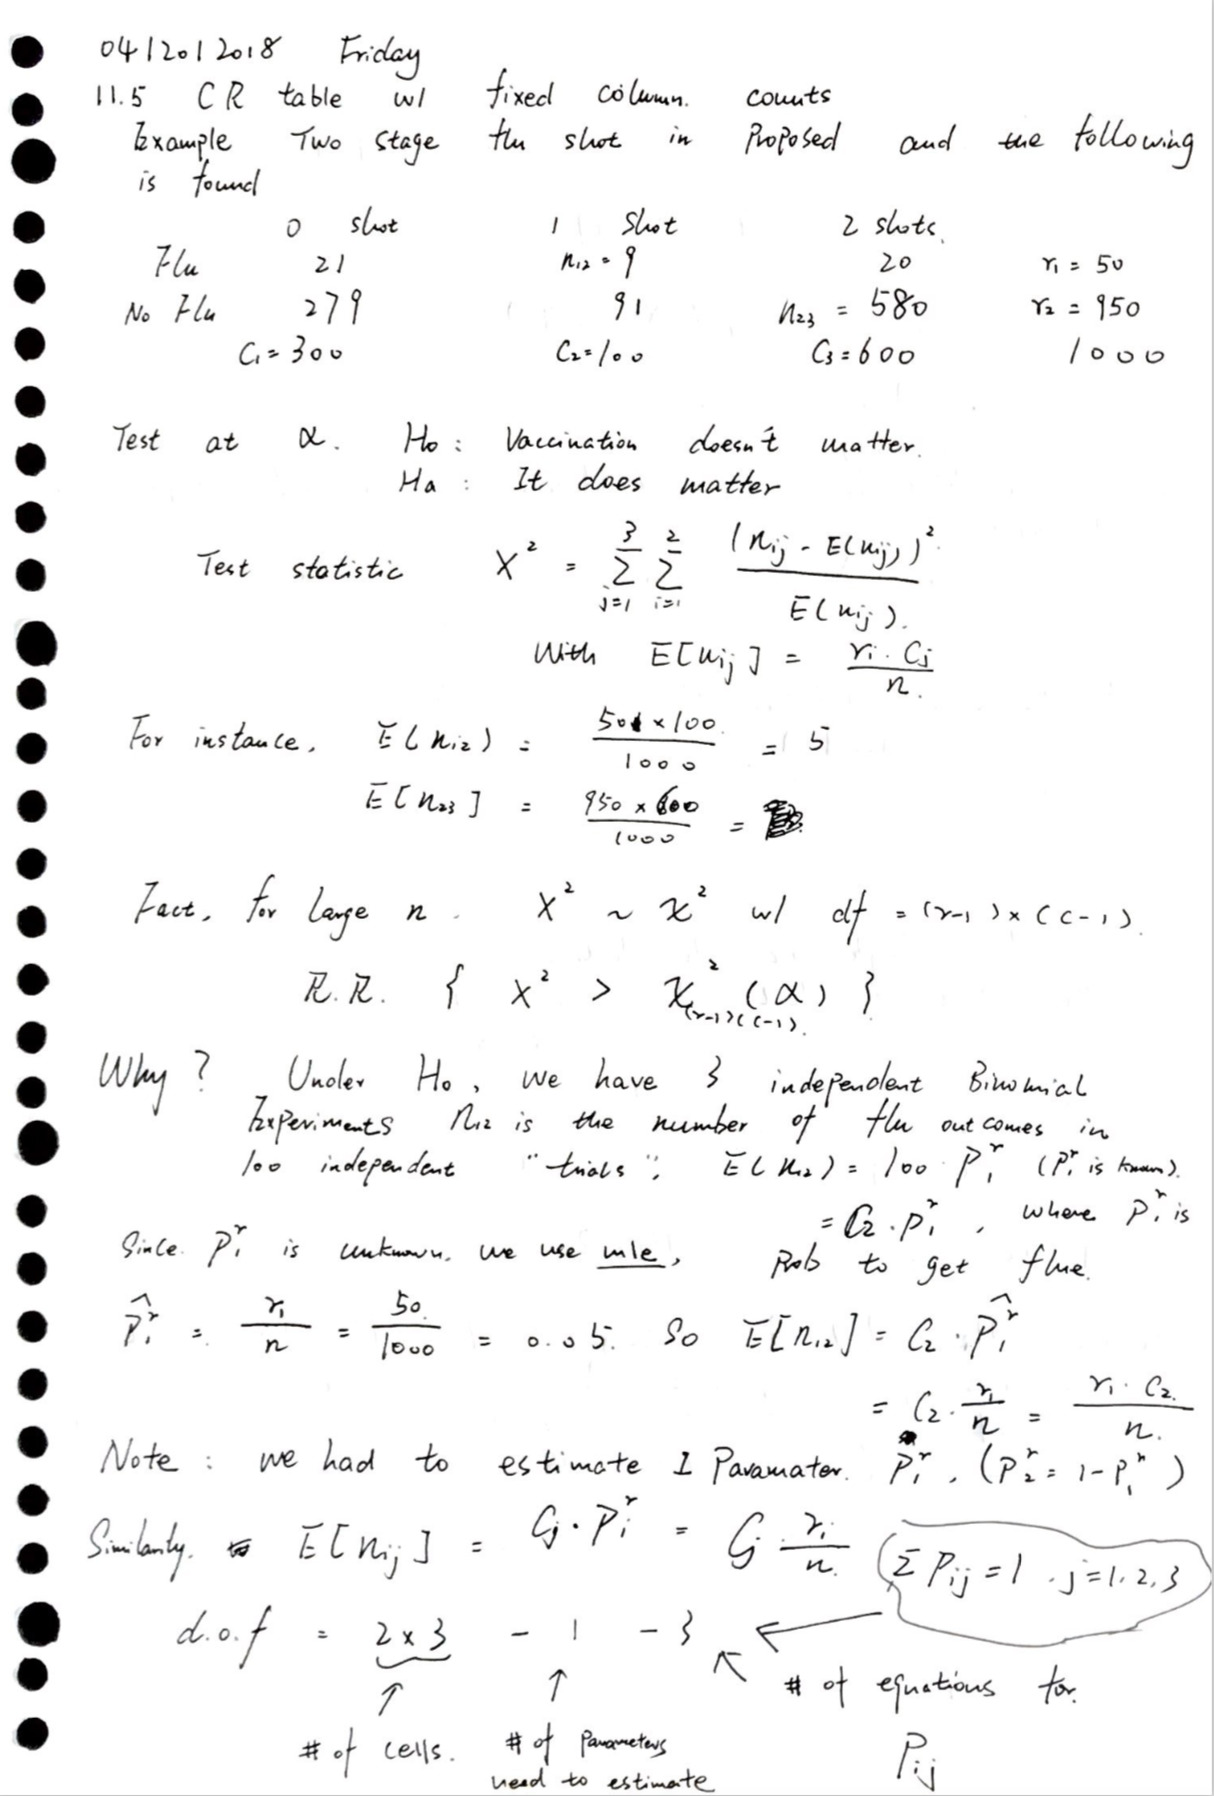 04/20/2018 Friday
11.5 CR table w/ fixed column. counts
Example Two stage flu shot in Proposed and the following
is found
0 shot 1 Shot 2 shots.
Flu 21 n₁₂ = 9 20 r₁ = 50
No Flu 279 91 n₂₃ = 580 r₂ = 950
C₁ = 300 C₂ = 100 C₃ = 600 1000
Test at α. Ho : Vaccination doesn't matter.
Ha : It does matter
Test statistic X² = Σ_{j=1}^{3} Σ_{i=1}^{2} (n_ij - E(n_ij))² / E(n_ij).
With E[n_ij] = r_i · C_j / n.
For instance, E(n₁₂) = 50 × 100 / 1000 = 5
E[n₂₃] = 950 × 600 / 1000 =
Fact, for large n. X² ~ χ² w/ df = (r-1) × (c-1).
R.R. { X² > χ²_{(r-1)(c-1)} (α) }
Why? Under Ho, we have 3 independent Binomial
Experiments n₁₂ is the number of flu outcomes in
100 independent "trials", E(n₁₂) = 100 · P₁ʳ (P₁ʳ is known).
= C₂ · P₁ʳ, where P₁ʳ is
Since P₁ʳ is unknown, we use mle, Prob to get flue.
P̂₁ʳ = r₁ / n = 50 / 1000 = 0.05. So E[n₁₂] = C₂ · P̂₁ʳ
= C₂ · r₁ / n = r₁ · C₂ / n.
Note : we had to estimate 1 Paramator. P₁ʳ, (P₂ʳ = 1 - P₁ʳ)
Similarly. E[n_ij] = C_j · P_iʳ = C_j r_i / n. (Σ P_ij = 1 . j = 1, 2, 3
d.o.f = 2 × 3 - 1 - 3
# of equations for.
# of cells. # of parameters P_ij
need to estimate